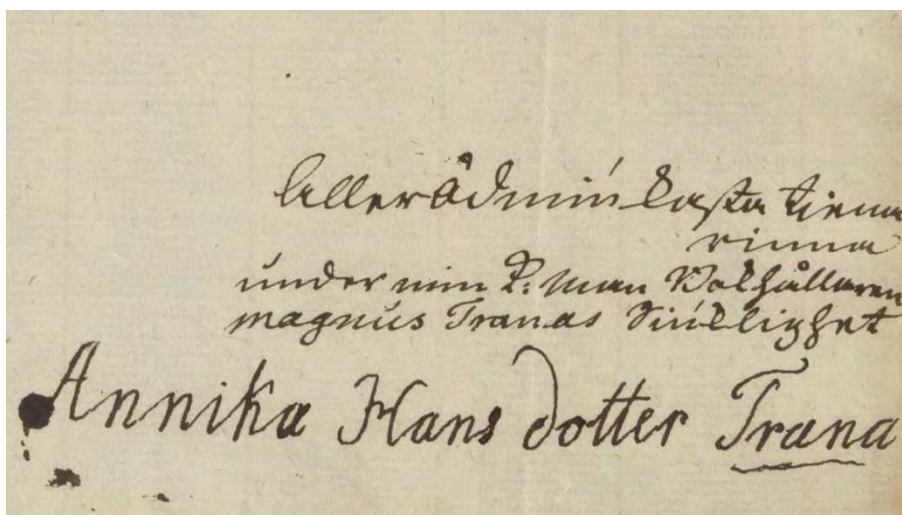 AllerÖdmiúkasta tiena
rinna
under min k: man Bokhållaren
magnus Tranas Siúklighet
Annika Hans dotter Trana